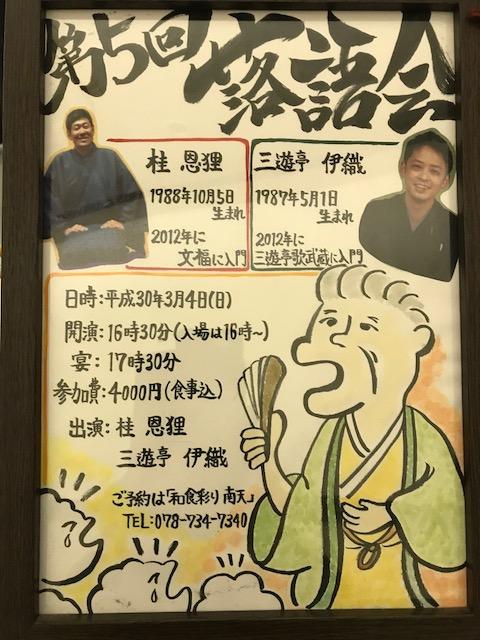 第5回 落語会
桂 恩狸
1988年10月5日
生まれ
2012年に
文福に入門
三遊亭 伊織
1987年5月1日
生まれ
2012年に
三遊亭歌武蔵に入門
日時:平成30年3月4日(日)
開演:16時30分(入場は16時〜)
宴:17時30分
参加費:4000円(食事込)
出演:桂 恩狸
三遊亭 伊織
ご予約は「和食彩り 南天」
TEL:078-734-7340